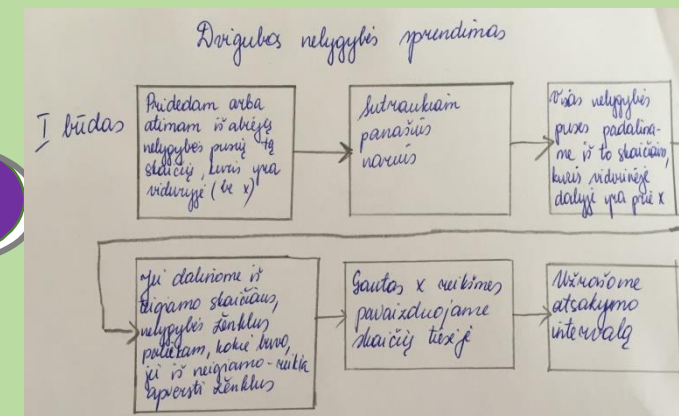 Dvigubos nelygybės sprendimas
I būdas
Pridedam arba
atimam iš abiejų
nelygybės pusių tą
skaičių, kuris yra
viduryje (be x)
Sutraukiam
panašius
narius
Visas nelygybės
puses padalina-
me iš to skaičiaus,
kuris vidurinėje
dalyje yra prie x
Jei dalinome iš
teigiamo skaičiaus,
nelygybės ženklus
paliekam, kokie buvo,
jei iš neigiamo - reikia
apversti ženklus
Gautas x reikšmes
pavaizduojame
skaičių tiesėje
Užrašome
atsakymo
intervalą